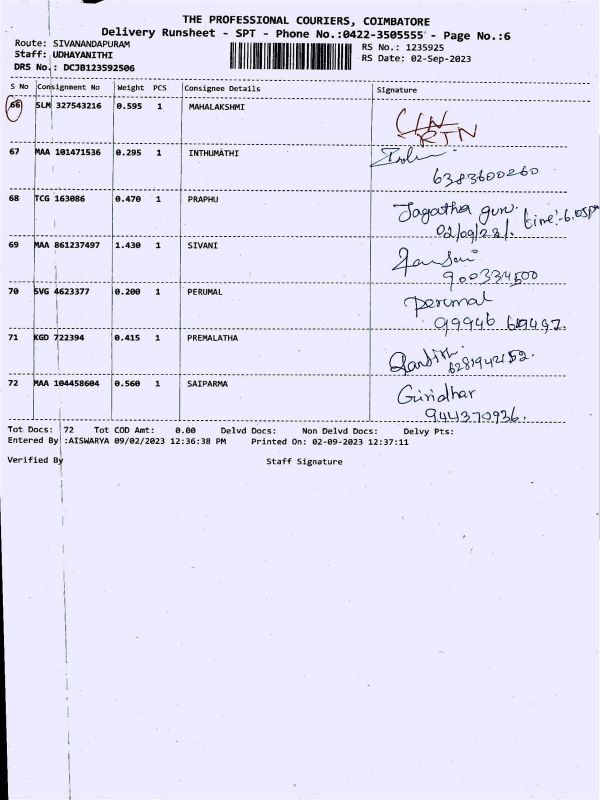 THE PROFESSIONAL COURIERS, COIMBATORE
Delivery Runsheet - SPT - Phone No.:0422-3505555 - Page No.:6
Route: SIVANANDAPURAM
RS No.: 1235925
Staff: UDHAYANITHI
RS Date: 02-Sep-2023
DRS No.: DCJB123592506
S No Consignment No Weight PCS Consignee Details Signature
66 SLM 327543216 0.595 1 MAHALAKSHMI
RTN
67 MAA 101471536 0.295 1 INTHUMATHI
6383600260
68 TCG 163086 0.470 1 PRAPHU Jagatha guru. time:-6.05pm
02/09/23/.
69 MAA 861237497 1.430 1 SIVANI
900334500
70 SVG 4623377 0.200 1 PERUMAL perumal
99946
71 KGD 722394 0.415 1 PREMALATHA
72 MAA 104458604 0.560 1 SAIPARMA Giridhar
944370936.
Tot Docs: 72 Tot COD Amt: 0.00 Delvd Docs: Non Delvd Docs: Delvy Pts:
Entered By :AISWARYA 09/02/2023 12:36:38 PM Printed On: 02-09-2023 12:37:11
Verified By Staff Signature